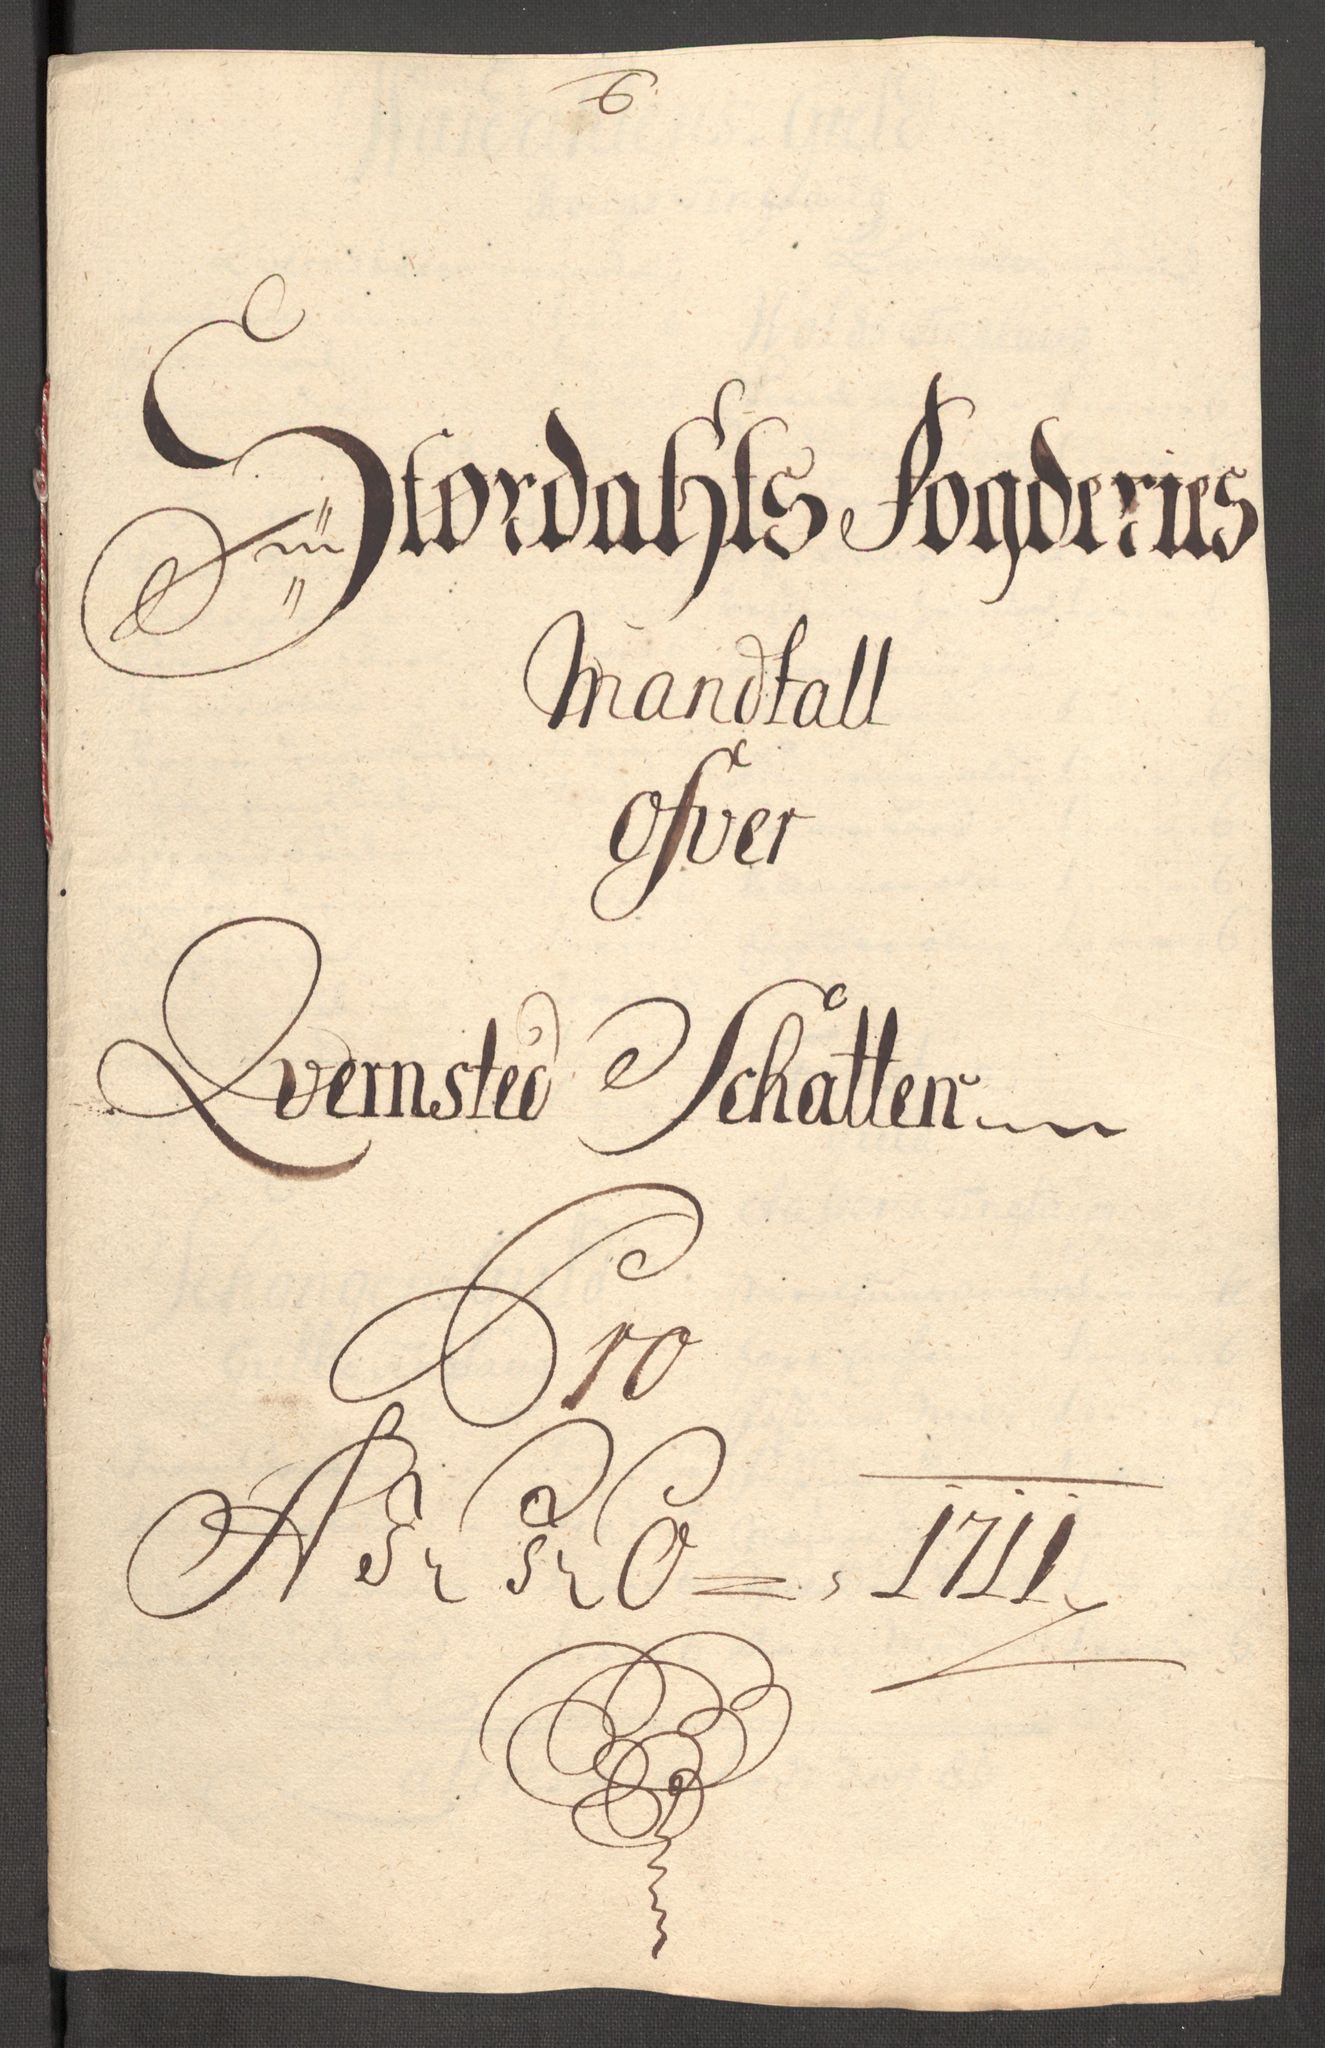 6
Størdahls Fogderies
Mandtall
ofver
Qvernsted Schatten
Pro
A&ordm; 1711